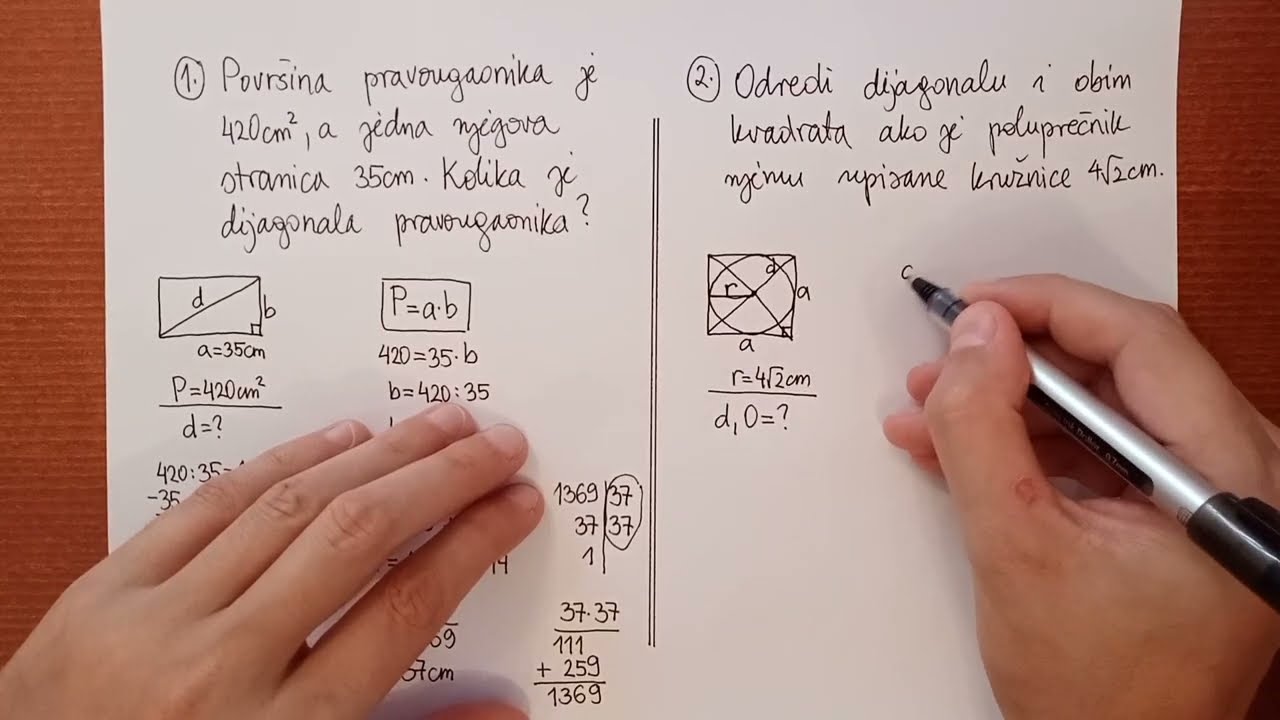 1. Površina pravougaonika je
420cm², a jedna njegova
stranica 35cm. Kolika je
dijagonala pravougaonika?
d
b
a=35cm
P=420cm²
d=?
P=a·b
420=35·b
b=420:35
420:35=
-35
1369 37
37 37
1
37·37
111
+ 259
1369
69
37cm
2. Odredi dijagonalu i obim
kvadrata ako je poluprečnik
njemu upisane kružnice 4√2cm.
d
r
a
a
r=4√2cm
d, O=?